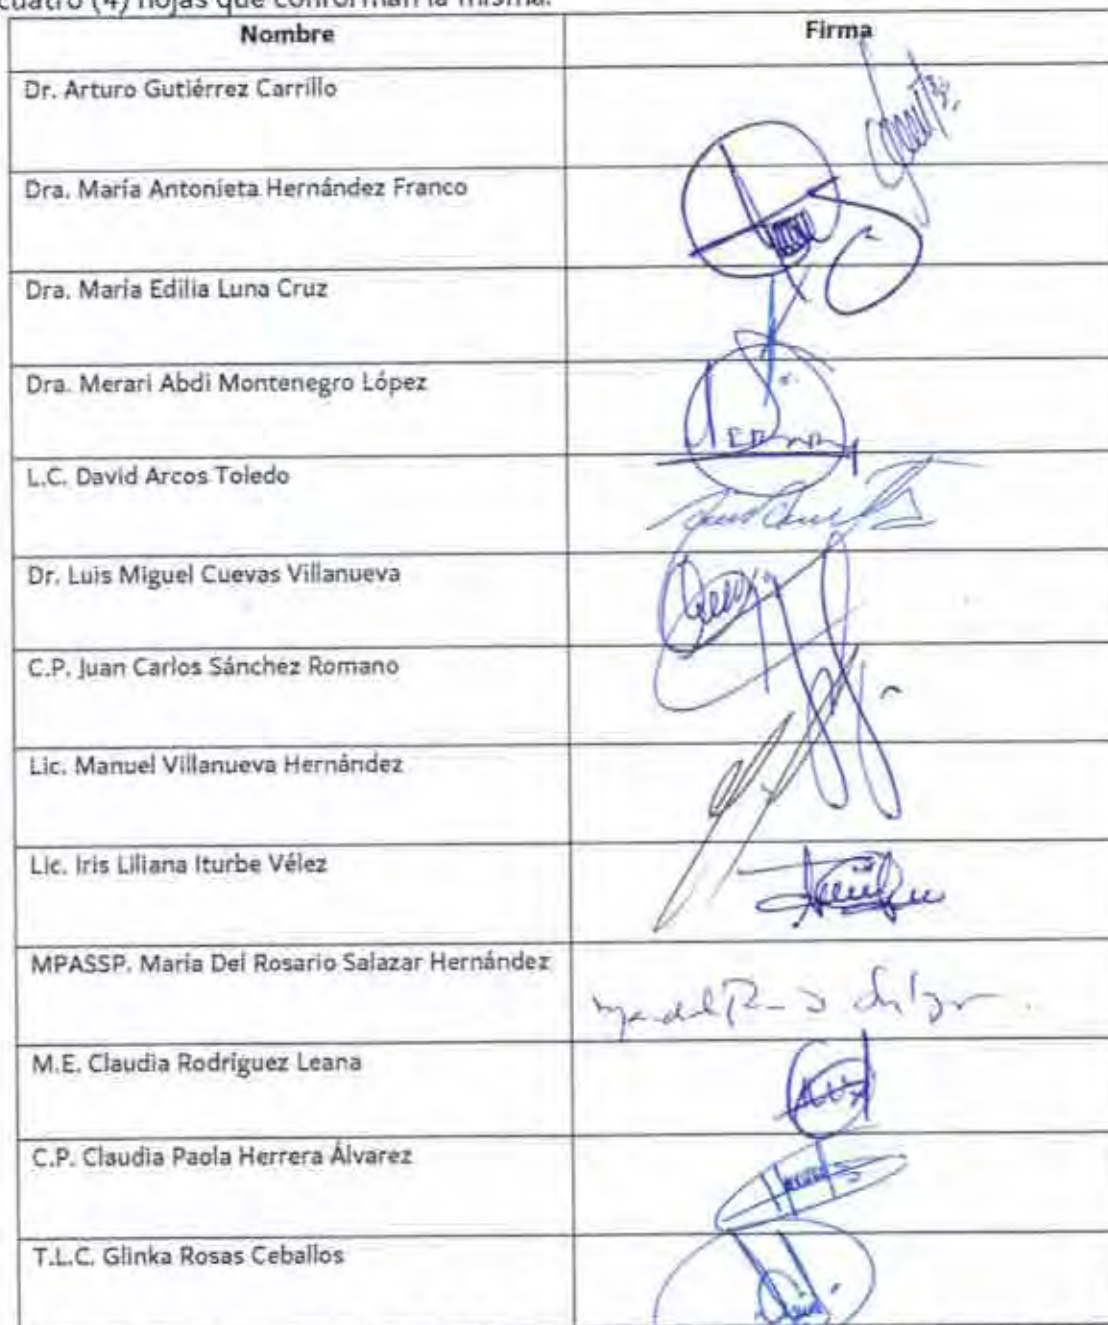 cuatro (4) hojas que conforman la misma.
Nombre Firma
Dr. Arturo Gutiérrez Carrillo
Dra. María Antonieta Hernández Franco
Dra. María Edilia Luna Cruz
Dra. Merari Abdi Montenegro López
L.C. David Arcos Toledo
Dr. Luis Miguel Cuevas Villanueva
C.P. Juan Carlos Sánchez Romano
Lic. Manuel Villanueva Hernández
Lic. Iris Liliana Iturbe Vélez
MPASSP. María Del Rosario Salazar Hernández
M.E. Claudia Rodríguez Leana
C.P. Claudia Paola Herrera Álvarez
T.L.C. Glinka Rosas Ceballos